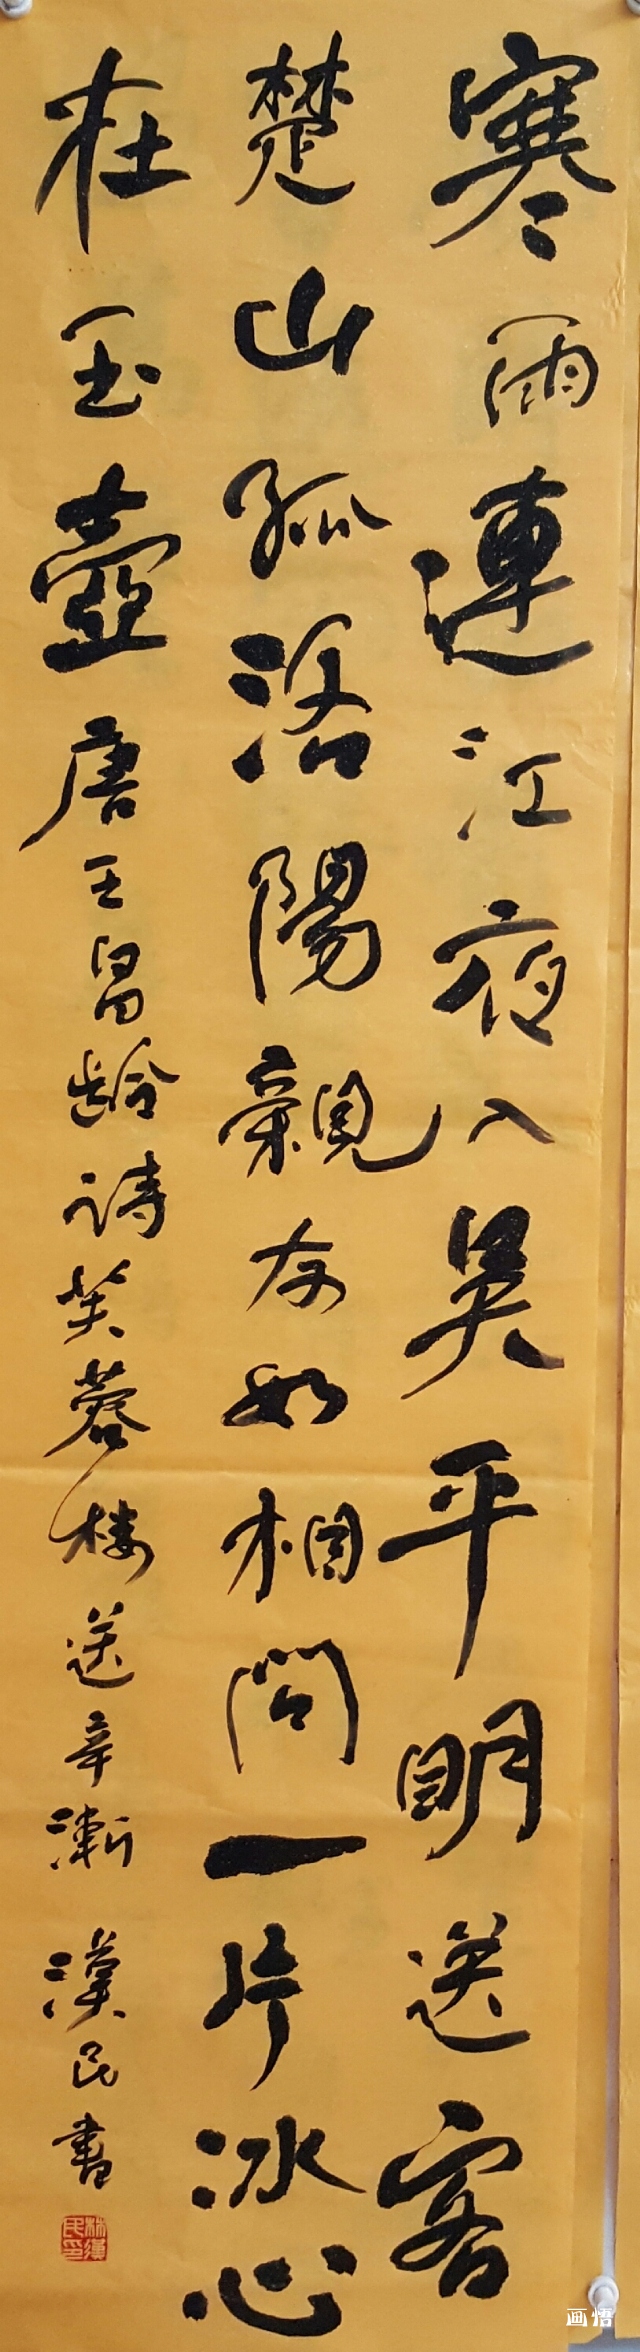 寒雨連江夜入吳平明送客
楚山孤洛陽親友如相問一片冰心
在玉壺 唐王昌齡詩芙蓉楼送辛漸 漢民書
林漢民印
画悟